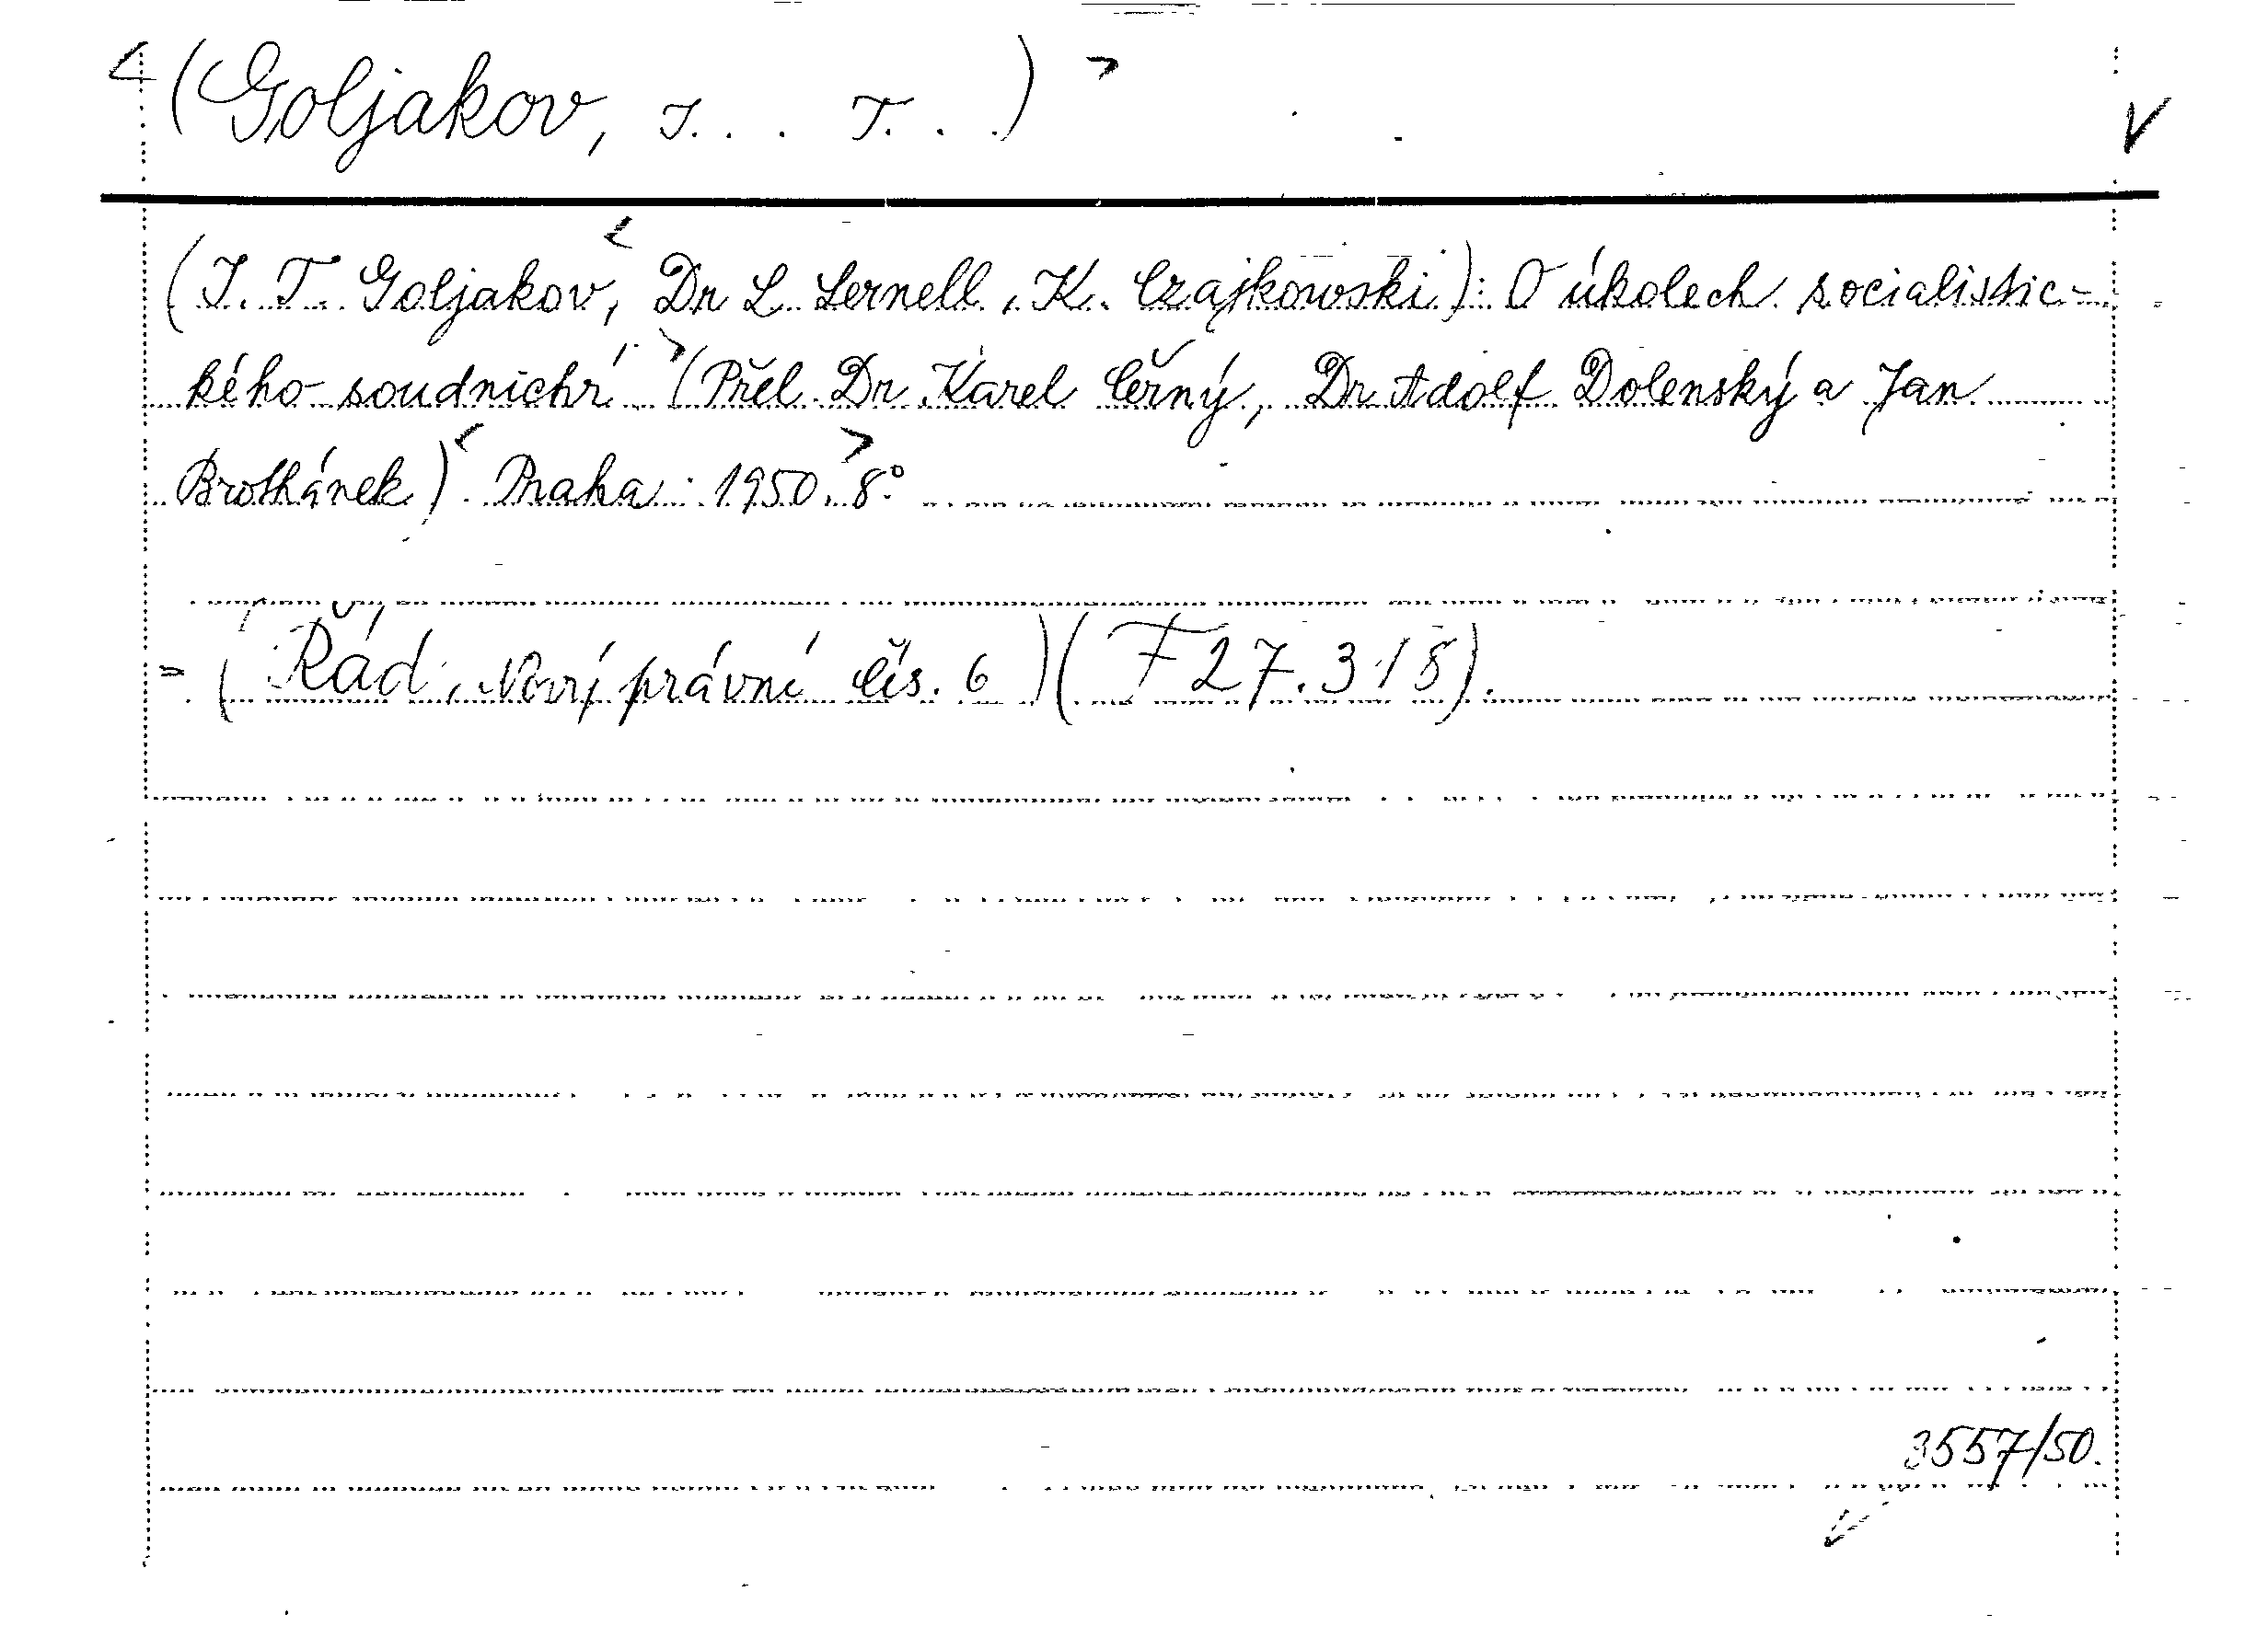 <(Goljakov, I... T...)> V
(I. T. Goljakov, Dr L. Lernell, K. Czajkowski): O úkolech socialistic-
kého soudnichví (Přel. Dr Karel Černý, Dr Adolf Dolenský a Jan
Brothánek). Praha: 1950. 8.°
= (Řád, Nový právní čís. 6) (F 27.318).
3557/50.